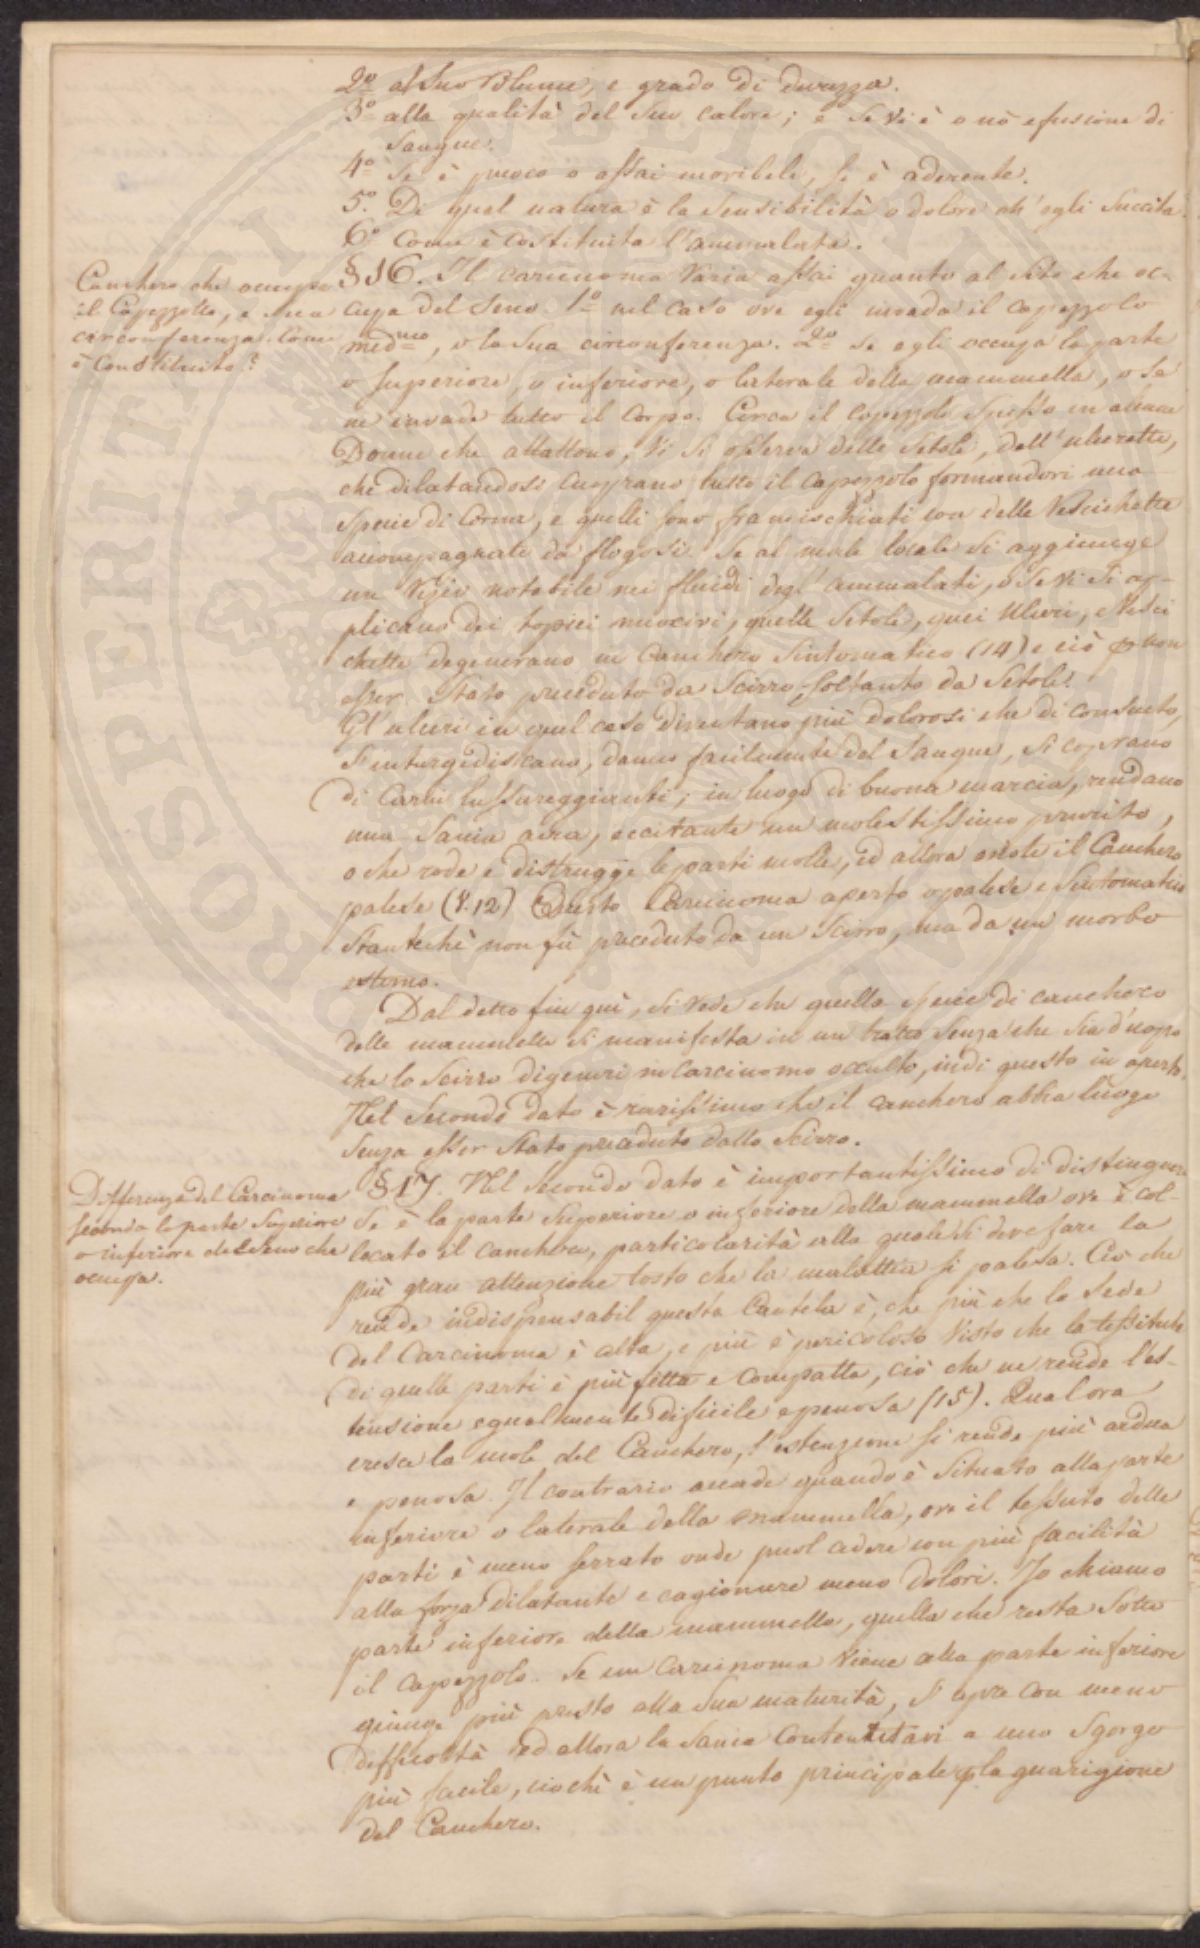 2º al suo Volume, e grado di durezza.
3º alla qualità del suo calore; e se vi è o nò efusione di
sangue.
4º Se è puoco o assai moribele, se è aderente.
5º. Di qual natura è la sensibilità o dolore ch'egli succita.
6º Come è costituita l'ammalata.
Canchero che occupa
il Capezzolo, e sua
circonferenza. Come
è Constituito?
§16. Il carcinoma varia assai quanto al sito che oc-
cupa del seno. 1º nel caso ove egli invada il capezzolo
medmo, o la sua circonferenza. 2º se egli occupa la parte
o superiore, o inferiore, o laterale della mammella, o se
ne invade tutto il corpo. Circa il capezzolo spesso in alcune
Donne che allattono, vi si osserva delle setole, dell'ulcerette,
che dilatandosi cuoprano tutto il capezzolo formandovi una
specie di Corona, e quelli sono framischiati con delle Vescichette
accompagnate da flogosi. Se al male locale si aggiunge
un Vizio notabile nei fluidi degl'ammalati, o se vi si ap-
plicano dei topici nuocivi, quelle setole, quei Ulceri, e Vesci
chette degenerano in Canchero Sintomatico (14) e ciò p non
esser stato preceduto da Scirro, soltanto da Setole.
Gl'ulceri in qual caso diventano più dolorosi che di consueto,
s'inturgediscano, danno facilmente del sangue, si coprano
di Carni lussureggianti; in luogo di buona marcia, rendano
una Sania acra, eccitante un molestissimo prurito,
o che rode e distrugge le parti molle, ed allora esiste il Canchero
palese (§.12) Questo Carcinoma aperto o palese e Sintomatico
stantechè non fù preceduto da un Scirro, ma da un morbo
esterno.
Dal detto fin quì, si vede che quella specie di canchero
delle mammelle si manifesta in un tratto senza che sia d'uopo
che lo Scirro digeneri in Carcinomo occulto, indi questo in aperto.
Nel Secondo dato è rarissimo che il canchero abbia luogo
senza esser stato preceduto dallo Scirro.
Differenza del Carcinoma
secondo la parte Superiore
o inferiore del Seno che
occupa.
§17. Nel secondo dato è importantissimo di distinguere
se è la parte superiore o inferiore della mammella ove è col-
locato il canchero, particolarità alla quale si deve fare la
più gran attenzione tosto che la malattia si palesa. Ciò che
rende indispensabil questa Cautela è, che più che la sede
del Carcinoma è alta, e più è pericoloso visto che la tessitura
di quelle parti è più fitta e compatta, ciò che ne rende l'es-
tensione egualmente dificile e penosa (15). Qualora
cresce la mole del Canchero, l'estenzione si rende più ardua
e penosa. Il contrario accade quando è situato alla parte
inferiore o laterale della mammella, ove il tessuto delle
parti è meno serrato onde puol cedere con più facilità
alla forza dilatante e cagionare meno dolori. Io chiamo
parte inferiore della mammella, quella che resta sotto
il capezzolo. Se un Carcinoma viene alla parte inferiore
giunge più presto alla sua maturità, s'apre con meno
difficoltà ed allora la sanie contenutavi a uno sgorgo
più facile, ciochè è un punto principale p la guarigione
del Canchero.